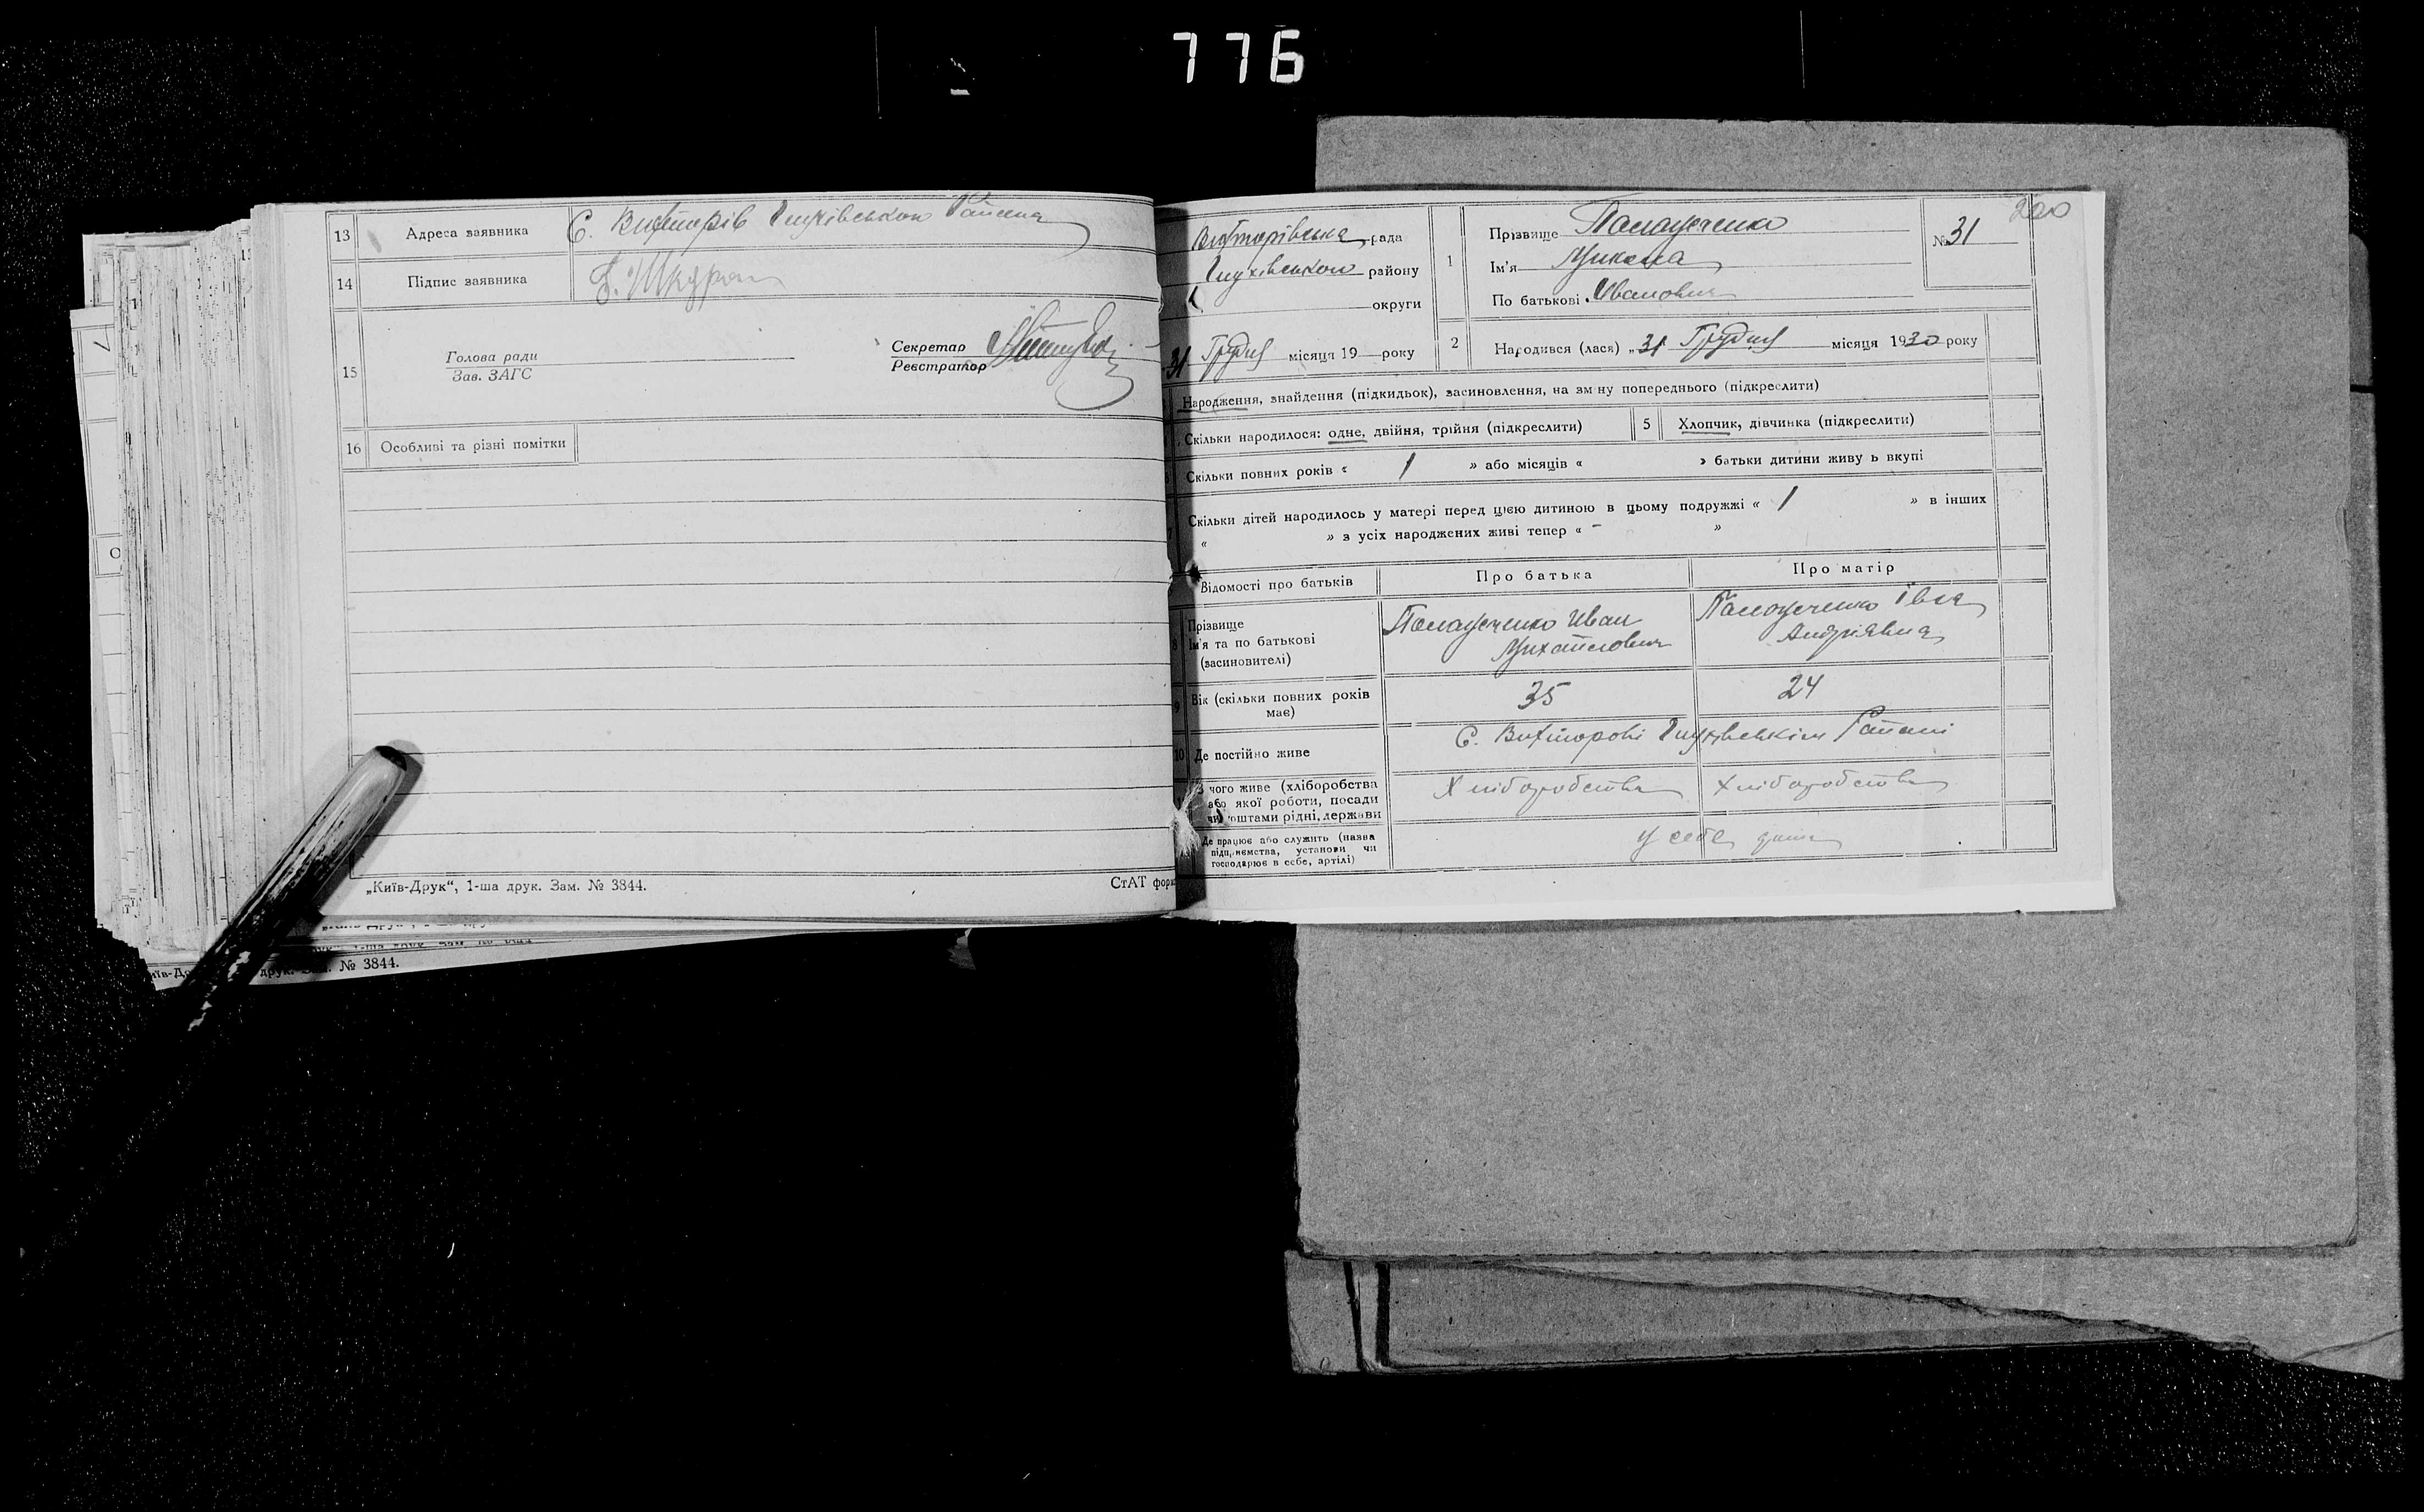 776
13 Адреса заявника С. Вихторів Глухівського Района
14 Підпис заявника
15 Голова ради
Зав. ЗАГС
Секретар
Реєстратор
16 Особливі та різні помітки
„Київ-Друк“, 1-ша друк. Зам. № 3844.
СтАТ форм
№ 3844.
200
Вихторівська рада
Глухівського району
округи
31 Грудня місяця 19 року
1 Прізвище
Ім'я Микола
По батькові Иванович
№ 31
2 Народився (лася) „31 Грудня місяця 1930 року
Народження, знайдення (підкидьок), засиновлення, на зм ну попереднього (підкреслити)
Скільки народилося: одне, двійня, трійня (підкреслити) 5 Хлопчик, дівчинка (підкреслити)
Скільки повних років « 1 » або місяців « » батьки дитини живу ь вкупі
Скільки дітей народилось у матері перед цією дитиною в цьому подружжі « 1 » в інших
« » з усіх народжених живі тепер « - »
Відомості про батьків Про батька Про матір
8 Прізвище
Ім'я та по батькові
(засиновителі)
Иван
Михайлович
Андріявна
9 Вік (скільки повних років
має) 35 24
10 Де постійно живе С. Вихторові Глухівськім Районі
З чого живе (хліборобства
або якої роботи, посади
чи коштами рідні, держави
Хліборобства Хліборобства
Де працює або служить (назва
підприємства, установи чи
господарює в себе, артілі)
у себе дома